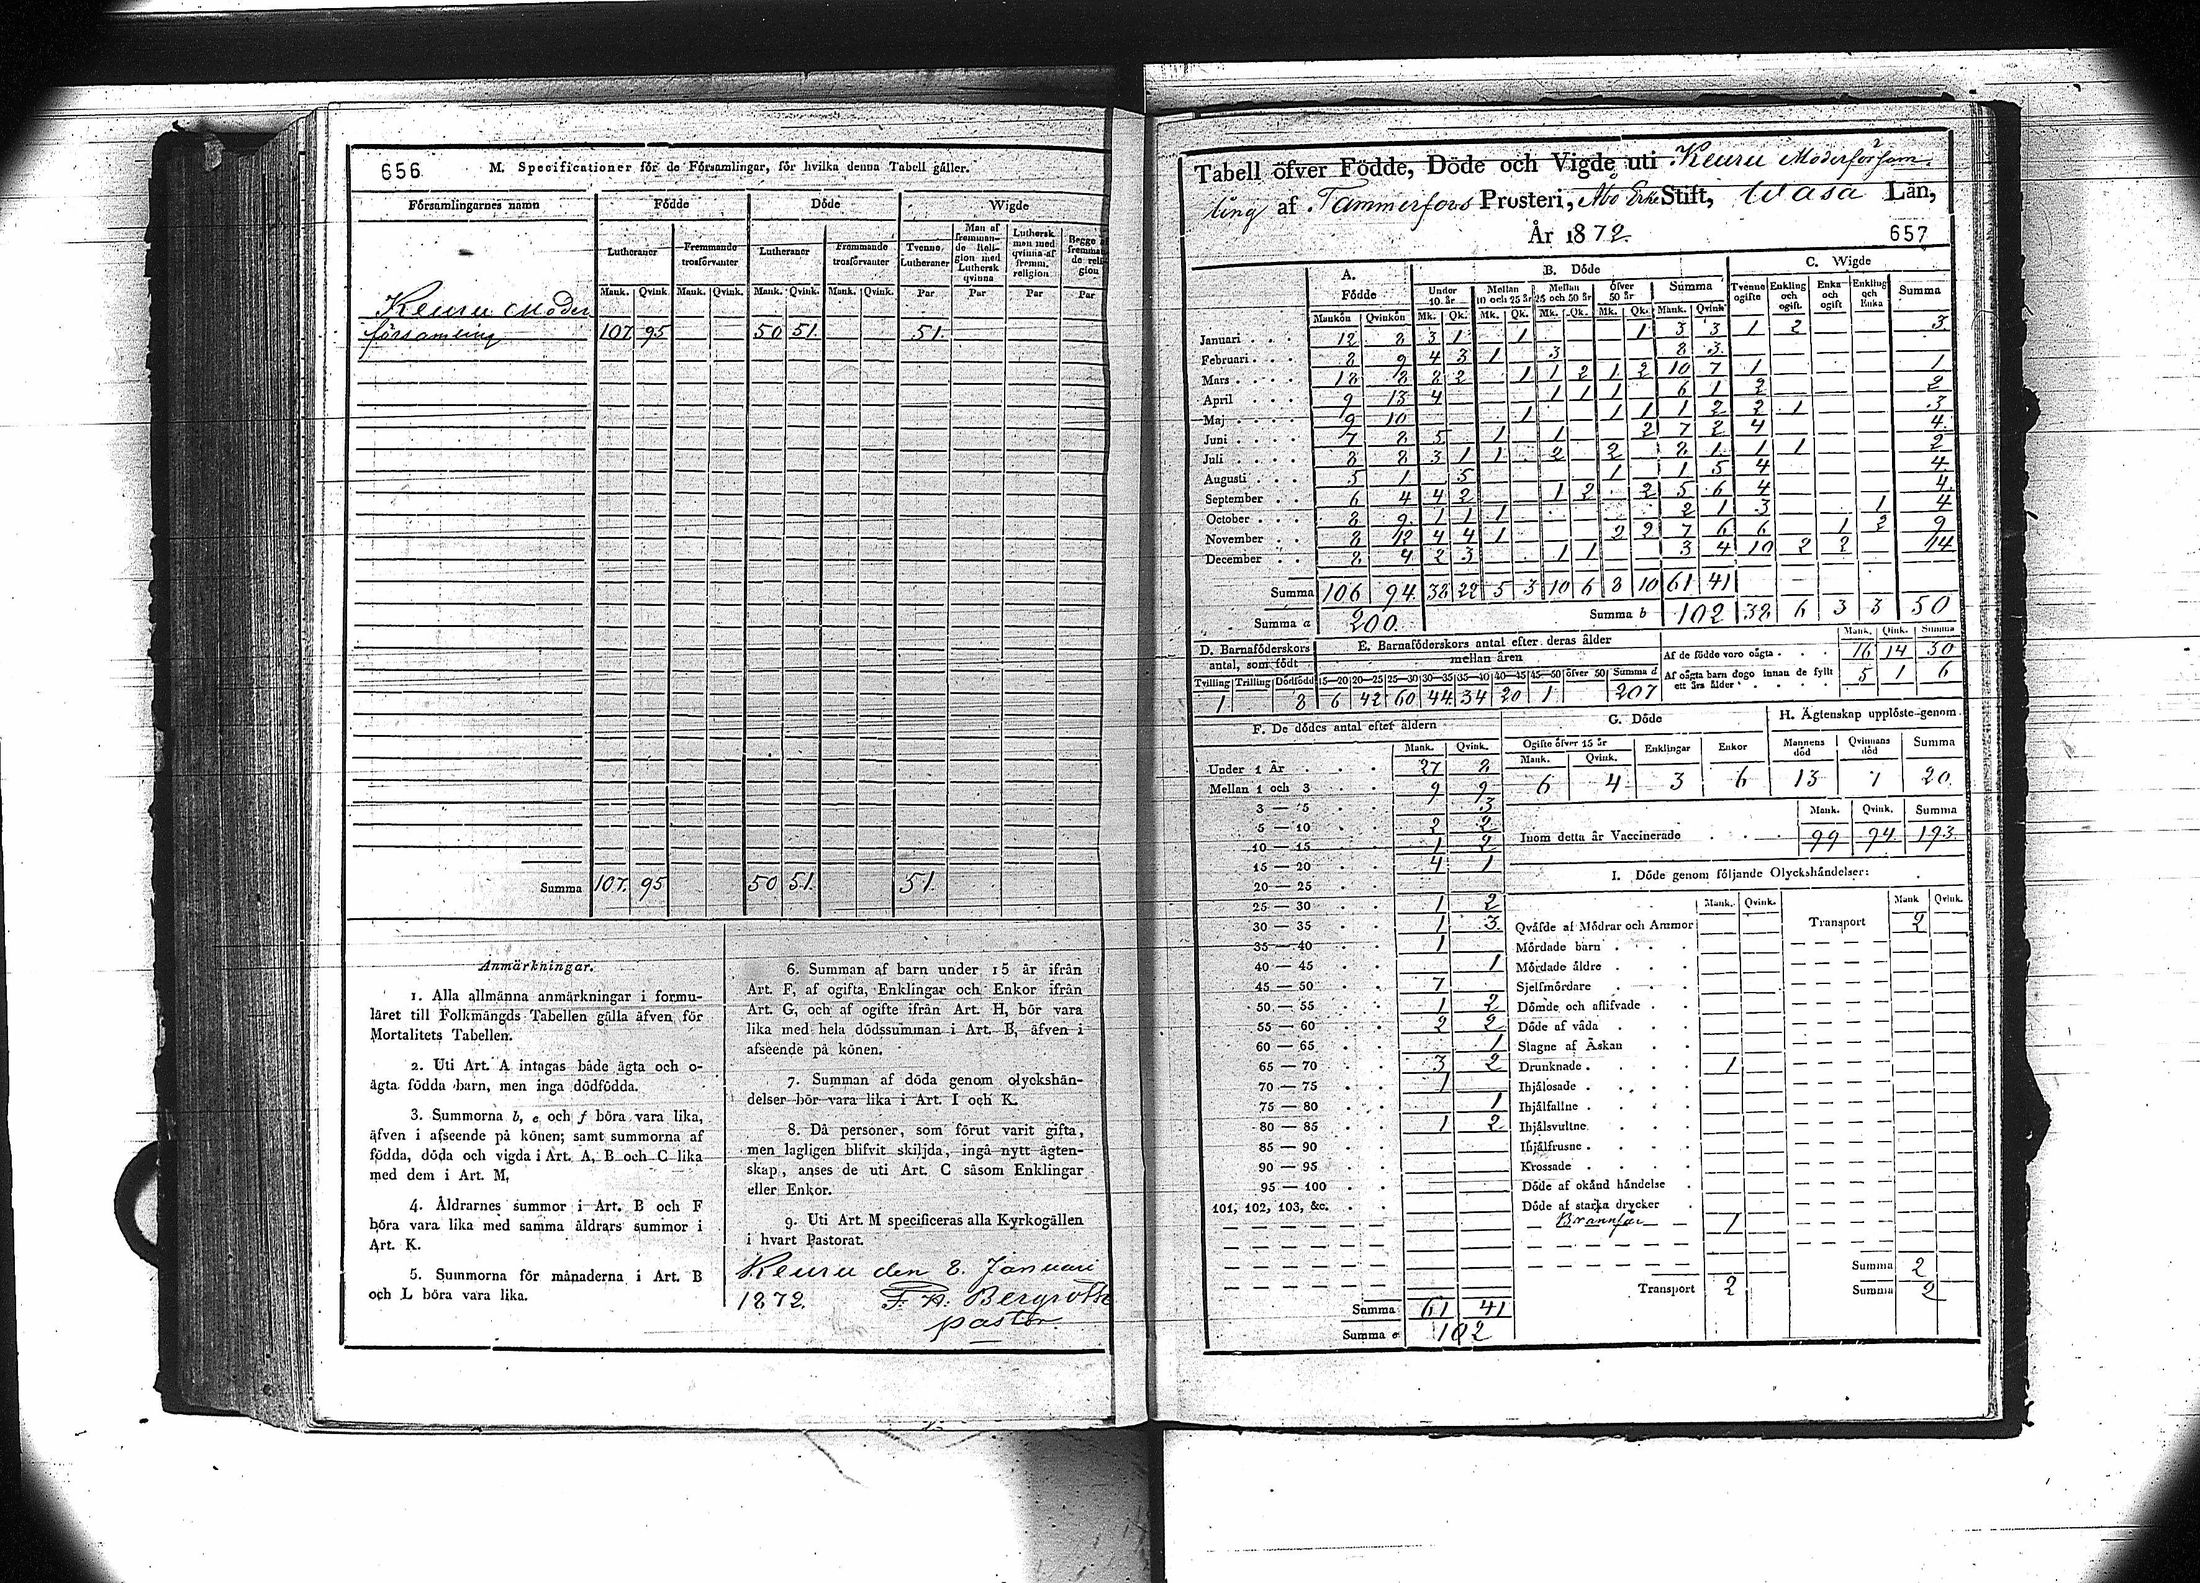 656
M. Specificationer för de Församlingar, för hvilka denna Tabell gäller.
Församlingarnes namn Födde Döde Wigde
Lutheraner Fremmande trosförvanter Lutheraner Fremmande trosförvanter Tvenne Lutheraner Man af fremmande Religion med Luthersk qvinna Luthersk man med qvinna af fremm. religion Begge af fremmande religion
Mank. Qvink. Mank. Qvink. Mank. Qvink. Mank. Qvink. Par Par Par Par
Keuru Moder
församling 107. 95 50 51. 51.
Summa 107. 95 50 51. 51.
Anmärkningar.
1. Alla allmänna anmärkningar i formu-
läret till Folkmängds Tabellen gälla äfven för
Mortalitets Tabellen.
2. Uti Art. A intagas både ägta och o-
ägta födda barn, men inga dödfödda.
3. Summorna b, e och f böra vara lika,
äfven i afseende på könen; samt summorna af
födda, döda och vigda i Art. A, B och C lika
med dem i Art. M.
4. Åldrarnes summor i Art. B och F
böra vara lika med samma åldrars summor i
Art. K.
5. Summorna för månaderna i Art. B
och L böra vara lika.
6. Summan af barn under 15 år ifrån
Art. F, af ogifta, Enklingar och Enkor ifrån
Art. G, och af ogifte ifrån Art. H, bör vara
lika med hela dödssumman i Art. B, äfven i
afseende på könen.
7. Summan af döda genom olyckshän-
delser bör vara lika i Art. I och K.
8. Då personer, som förut varit gifta,
men lagligen blifvit skiljda, ingå nytt ägten-
skap, anses de uti Art. C såsom Enklingar
eller Enkor.
9. Uti Art. M specificeras alla Kyrkogällen
i hvart Pastorat.
Keuru den 8. Januari
1872. Bergroth
pastor
Tabell öfver Födde, Döde och Vigde uti Keuru Moderförsam-
ling af Tammerfors Prosteri, Åbo Erke Stift, Wasa Län,
År 1872. 657
A. Födde B. Döde C. Wigde
Under 10 år Mellan 10 och 25 år Mellan 25 och 50 år öfver 50 år Summa Tvenne ogifte Enkling och ogift Enka och ogift Enkling och Enka Summa
Mankön Qvinkön Mk. Qk. Mk. Qk. Mk. Qk. Mk. Qk. Mank. Qvink
Januari 12 8 3 1 1 1 3 3 1 2 3
Februari 8 9 4 3 1 3 8 3
Mars 18 8 8 2 1 1 2 1 2 10 7 1 1
April 9 13 4 1 1 1 6 1 2 2
Maj 9 10 1 1 1 1 2 2 1 3
Juni 7 8 5 1 1 2 7 2 4 4
Juli 8 8 3 1 1 2 2 8 1 1 1 2
Augusti 5 1 5 1 1 5 4 4
September 6 4 4 2 1 2 2 5 6 4 4
October 8 9 1 1 1 2 1 3 1 4
November 8 12 4 4 1 2 2 7 6 6 1 2 9
December 8 4 2 3 1 1 3 4 10 2 2 14
Summa 106 94 38 22 5 3 10 6 8 10 61 41
Summa a 200. Summa b 102 38 6 3 3 50
D. Barnaföderskors antal, som födt
Tvilling Trilling Dödfödd
1 8
E. Barnaföderskors antal efter deras ålder
mellan åren
15—20 20—25 25—30 30—35 35—40 40—45 45—50 öfver 50 Summa d
6 42 60 44 34 20 1 207
Mank. Qink. Summa
Af de födde voro oägta 16 14 30
Af oägta barn dogo innan de fyllt
ett års ålder 5 1 6
F. De dödes antal efter åldern
Mank. Qvink.
Under 1 År 27 8
Mellan 1 och 3 9 9
3 — 5 3
5 — 10 2 2
10 — 15 1 2
15 — 20 4 1
20 — 25
25 — 30 1 2
30 — 35 1 3
35 — 40 1
40 — 45 1
45 — 50 7
50 — 55 1 2
55 — 60 2 2
60 — 65 1
65 — 70 3 2
70 — 75 1
75 — 80 1
80 — 85 1 2
85 — 90
90 — 95
95 — 100
101, 102, 103, &c.
Summa 61 41
Summa e 102
G. Döde
Ogifte öfver 15 år Enklingar Enkor
Mank. Qvink.
6 4 3 6
H. Ägtenskap upplöste genom
Mannens död Qvinnans död Summa
13 7 20.
Mank. Qvink. Summa
Inom detta år Vaccinerade 99 94 193.
I. Döde genom följande Olyckshändelser:
Mank. Qvink. Mank Qvink.
Qväfde af Mödrar och Ammor Transport 2
Mördade barn
Mördade äldre
Sjelfmördare
Dömde och aflifvade
Döde af våda
Slagne af Åskan
Drunknade 1
Ihjälosade
Ihjälfallne
Ihjälsvultne
Ihjälfrusne
Krossade
Döde af okänd händelse
Döde af starka drycker
1
Summa 2
Transport 2 Summa 2